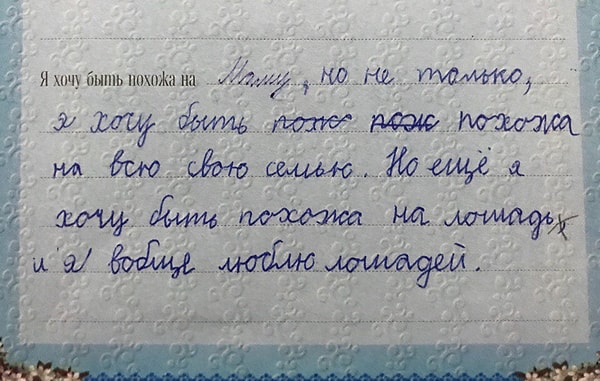 Я хочу быть похожа на Маму, но не только,
я хочу быть похо пож похожа
на всю свою семью. Но ещё я
хочу быть похожа на лошадь
и я вобще люблю лошадей.